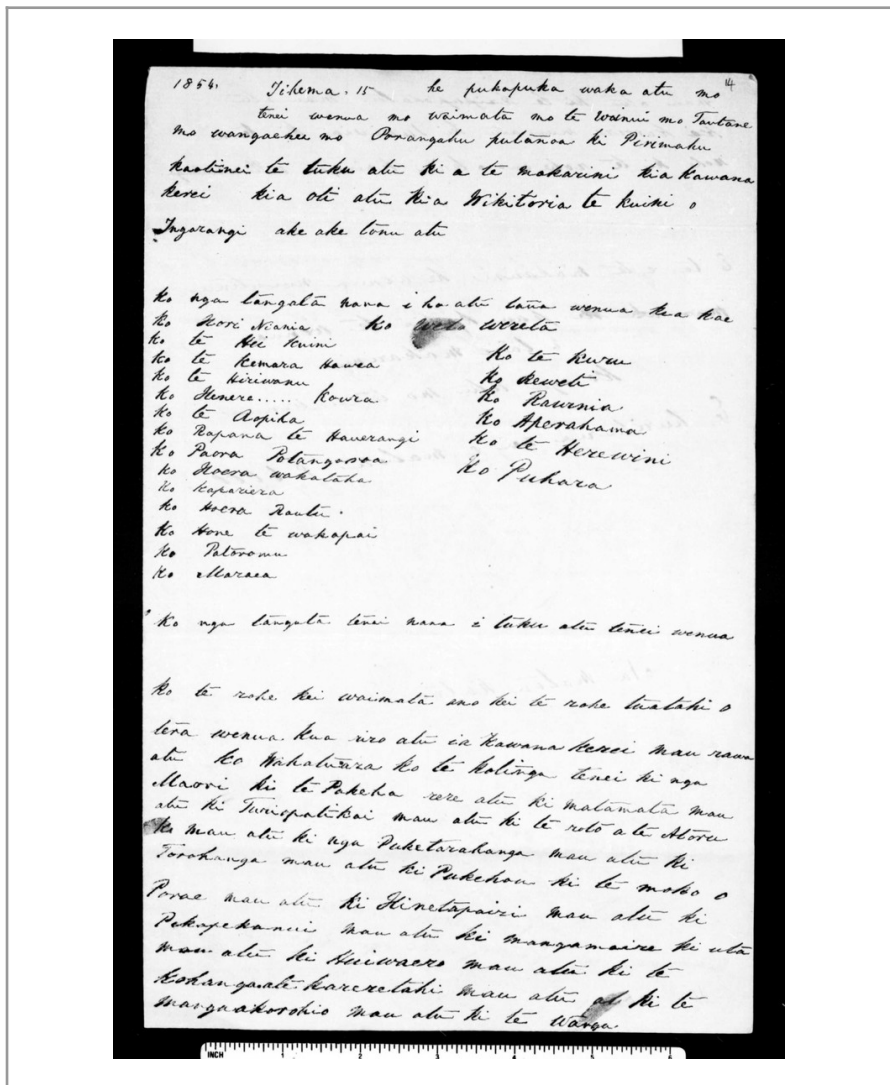 14
1854. Tihema. 15 he pukapuka waka atu mo
tenei wenua mo waimata mo te Wainui mo Tautane
mo wangaehu mo Porangahu putanoa ki Pirimahu
kaotienei te tuku atu ki a te makarini kia Kawana
kerei kia oti atu kia Wikitoria te kuini o
Ingarangi ake ake tonu atu
ko nga tangata nana i ho atu taua wenua kia kae
ko Hori Niania ko wereta
ko te Hei kuini
ko te Kemara Hawea Ko te kuru
ko te Hiriwanu Ko Reweti
ko Henere..... Koura Ko Rawinia
ko te Aopiha Ko Aperahama
ko Rapana te Hauerangi Ko te Herewini
ko Paora Potangaroa Ko Puhara
ko Hoera wakataha
ko kapariera
ko Hoera Rautu.
ko Hone te wakapai
ko Patoromu
ko Maraea
Ko nga tangata tenei nana i tuku atu tenei wenua
ko te rohe kei waimata ano kei te rohe tuatahi o
tera wenua kua riro atu ia Kawana kerei mau rawa
atu ko Wakatuara ko te kotinga tenei ki nga
Maori ki te Pakeha rere atu ki matamata mau
atu ki mau atu ki te roto a te Atoru
ki mau atu ki nga Puketarahanga mau atu ki
Torohanga mau atu ki Pukehou ki te moko o
Porae mau atu ki Hinetapairi mau atu ki
Pekapekanui mau atu ki mangamaire ki uta
mau atu ki Huiwaero mau atu ki te
Kohanga ate kareretahi mau atu ki te
mangaakorohio mau atu ki te Wanga
INCH 1 2 3 4 5 6